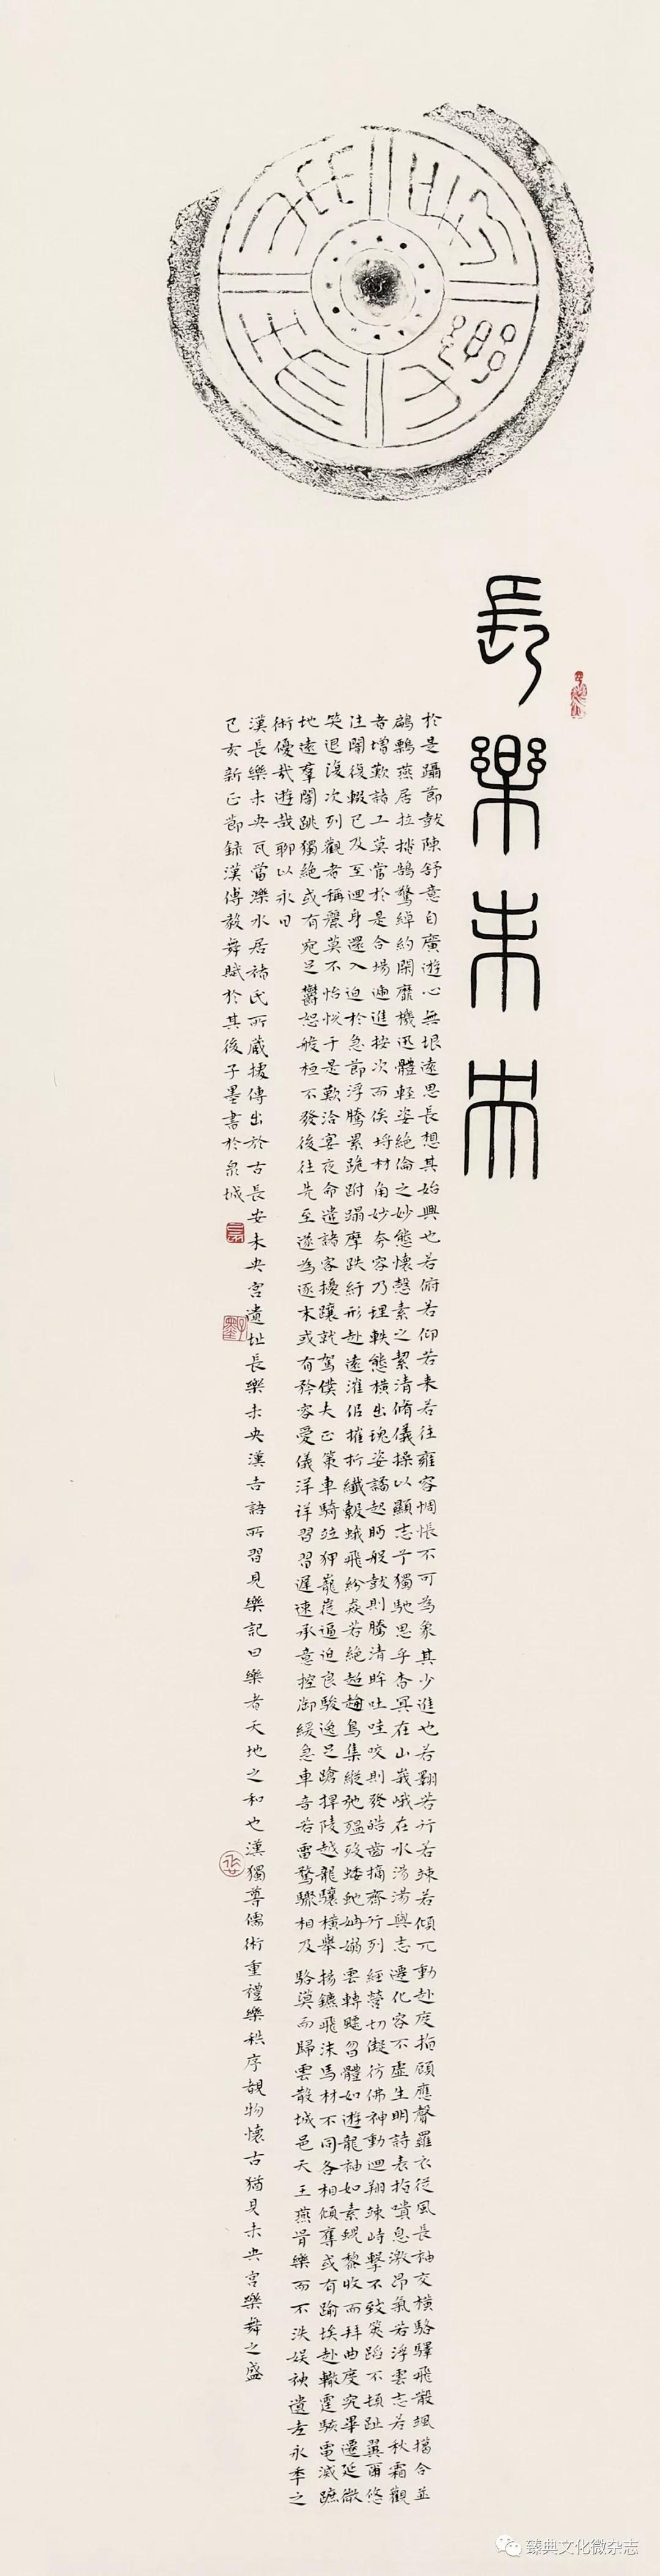 長樂未央
於是躡節鼓陳舒意自廣遊心無垠遠思長想其始興也若俯若仰若来若往雍容惆悵不可為象其少進也若翱若行若竦若傾兀動赴度指顧應聲羅衣從風長袖交橫駱驛飛散颯擖合並
鶣𪈼燕居拉㧺鵠驚綽約閑靡機迅體輕姿絕倫之妙態懷愨素之絜清脩儀操以顯志兮獨馳思乎杳冥在山峩峨在水湯湯與志遷化容不虛生明詩表指嘳息激昂氣若浮雲志若秋霜觀
者增歎諸工莫當於是合場遞進按次而俟埒材角妙夸容乃理軼態橫出瑰姿譎起眄般鼓則騰清眸吐哇咬則發皓齒摘齊行列經營切儗彷佛神動迴翔竦峙擊不致筴蹈不頓趾翼爾悠
往闇復輟已及至迴身還入迫於急節浮騰累跪跗蹋摩跌紆形赴遠漼似摧折纖縠蛾飛紛猋若絕超趫鳥集縱弛殟歿蜲虵姌嫋雲轉飄曶體如遊龍袖如素蜺黎收而拜曲度究畢遷延微
笑退復次列觀者稱麗莫不怡悅于是歡洽宴夜命遣諸客擾躟就駕僕夫正策車騎竝狎巃嵸逼迫良駿逸足蹌捍陵越龍驤橫舉揚鑣飛沫馬材不同各相傾奪或有踰埃赴轍霆駭電滅蹠
地遠羣闇跳獨絕或有宛足鬱怒般桓不發後往先至遂為逐末或有矜容愛儀洋洋習習遲速承意控御緩急車音若雷騖驟相及駱漠而歸雲散城邑天王燕胥樂而不泆娱神遺老永年之
術優哉遊哉聊以永日
漢長樂未央瓦當濼水居褚氏所藏據傳出於古長安未央宮遺址長樂未央漢吉語所習見樂記曰樂者天地之和也漢獨尊儒術重禮樂秩序覩物懷古猶見未央宮樂舞之盛
己亥新正節錄漢傅毅舞賦於其後子墨書於泉城
臻典文化微杂志